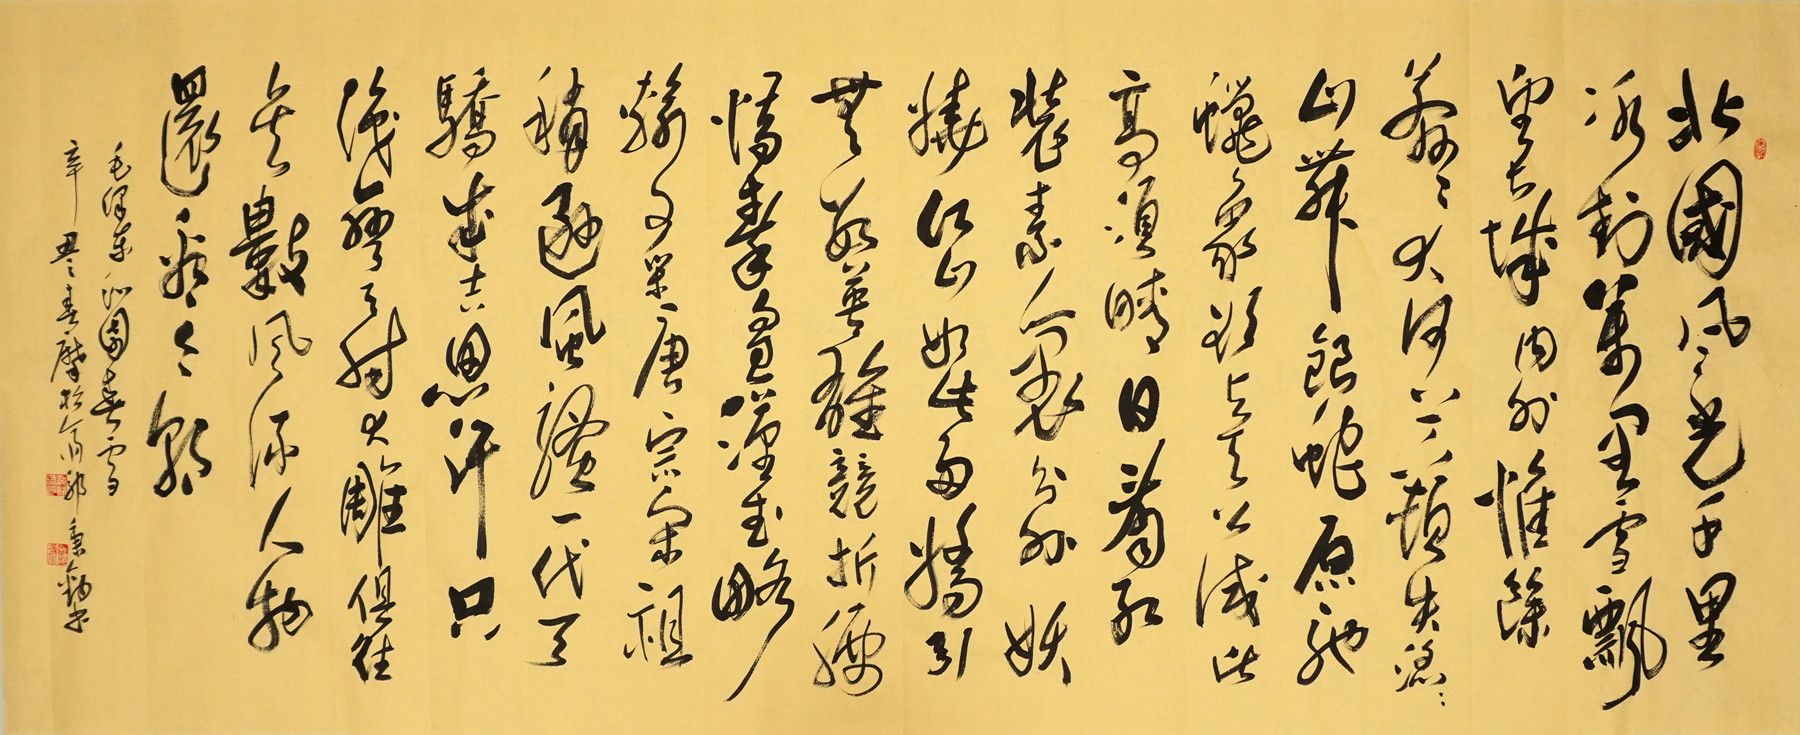 北國風光千里
冰封萬里雪飄
望長城內外惟餘
莽々大河上下頓失滔々
山舞銀蛇原馳
蠟象欲與天公試比
高須晴日看紅
裝素裹分外妖
嬈江山如此多嬌引
無數英雄競折腰
惜秦皇漢武略
輸文采唐宗宋祖
稍遜風騷一代天
驕成吉思汗只
識彎弓射大雕俱往
矣數風流人物
還看今朝
毛澤東沁園春雪
辛丑春於書